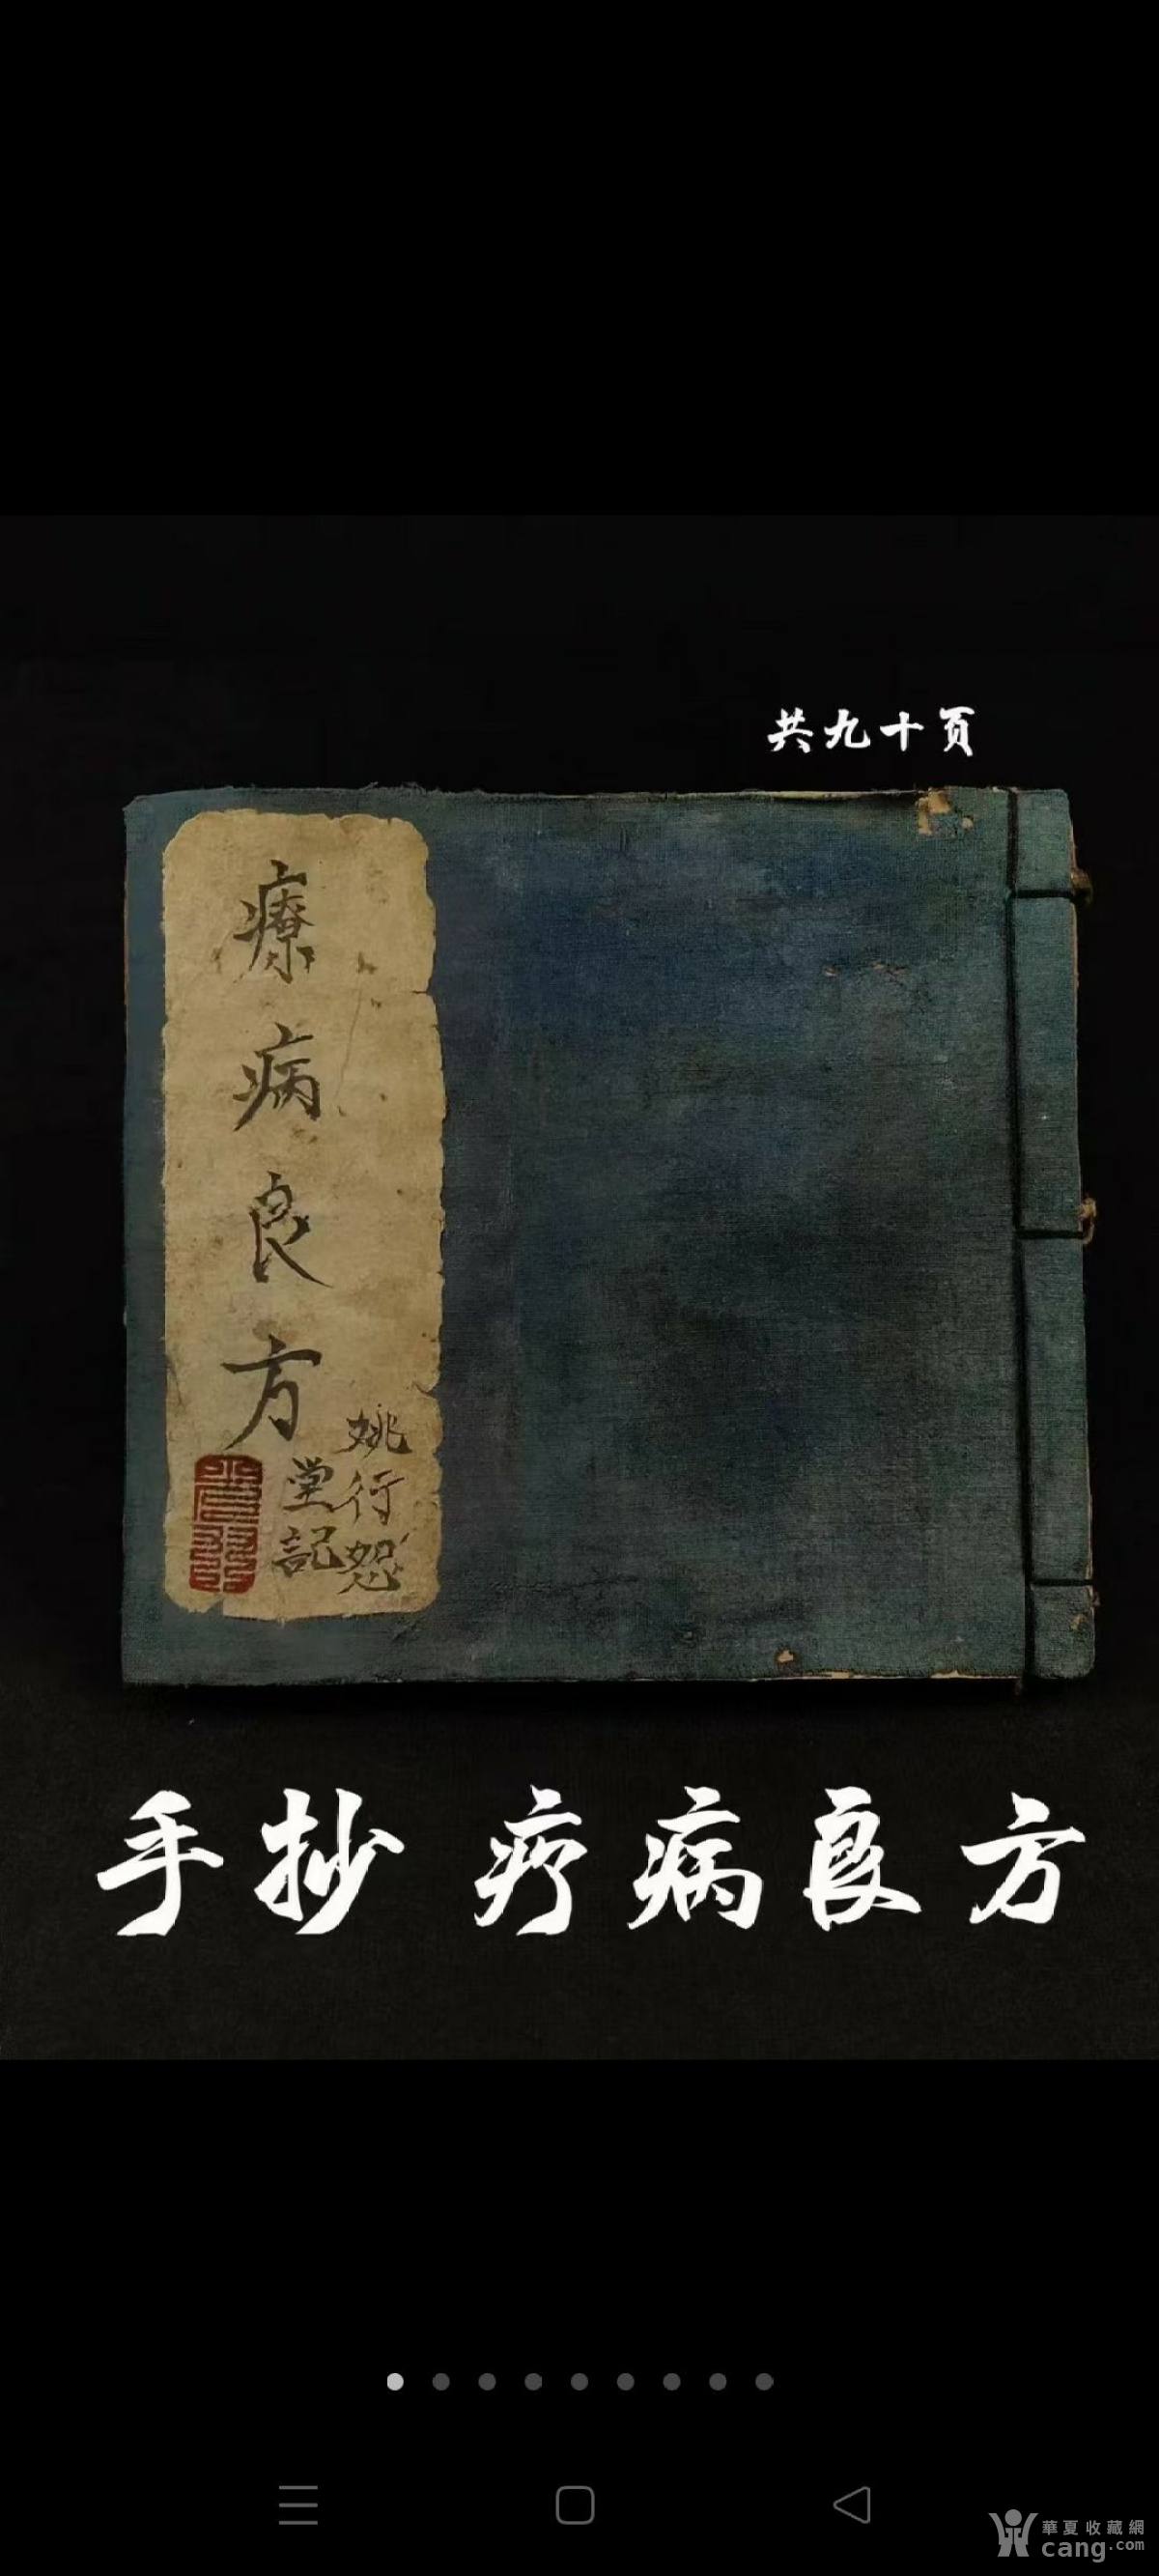 共九十页
療病良方
姚行恕
堂記
手抄 疗病良方
華夏收藏網
cang.com